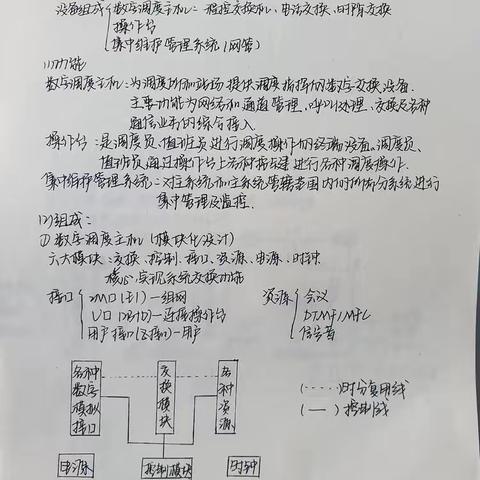 设备组成 数字调度主机：程控交换机、电话交换、时隙交换
操作台
集中维护管理系统（网管）
(1)功能
数字调度主机：为调度所和站场提供调度指挥的数字交换设备.
主要功能为网络和通道管理、呼叫处理、交换及各种
通信业务的综合接入
操作台：是调度员、值班员进行调度操作的终端设备。调度员、
值班员通过操作台上各种按键进行各种调度操作.
集中维护管理系统：对主系统和主系统管辖范围内的所有分系统进行
集中管理及监控.
(2)组成：
① 数字调度主机（模块化设计）
六大模块：交换、控制、接口、资源、电源、时钟.
核心,实现系统交换功能
接口 2M口(E1)—组网
U口(2B+D)—连接操作台
用户接口(Z接口)—用户
资源 会议
DTMF/MFC
信号音
各种数字模拟接口
交换模块
各种资源
(·····)时分复用线
(—)控制线
电源
控制模块
时钟